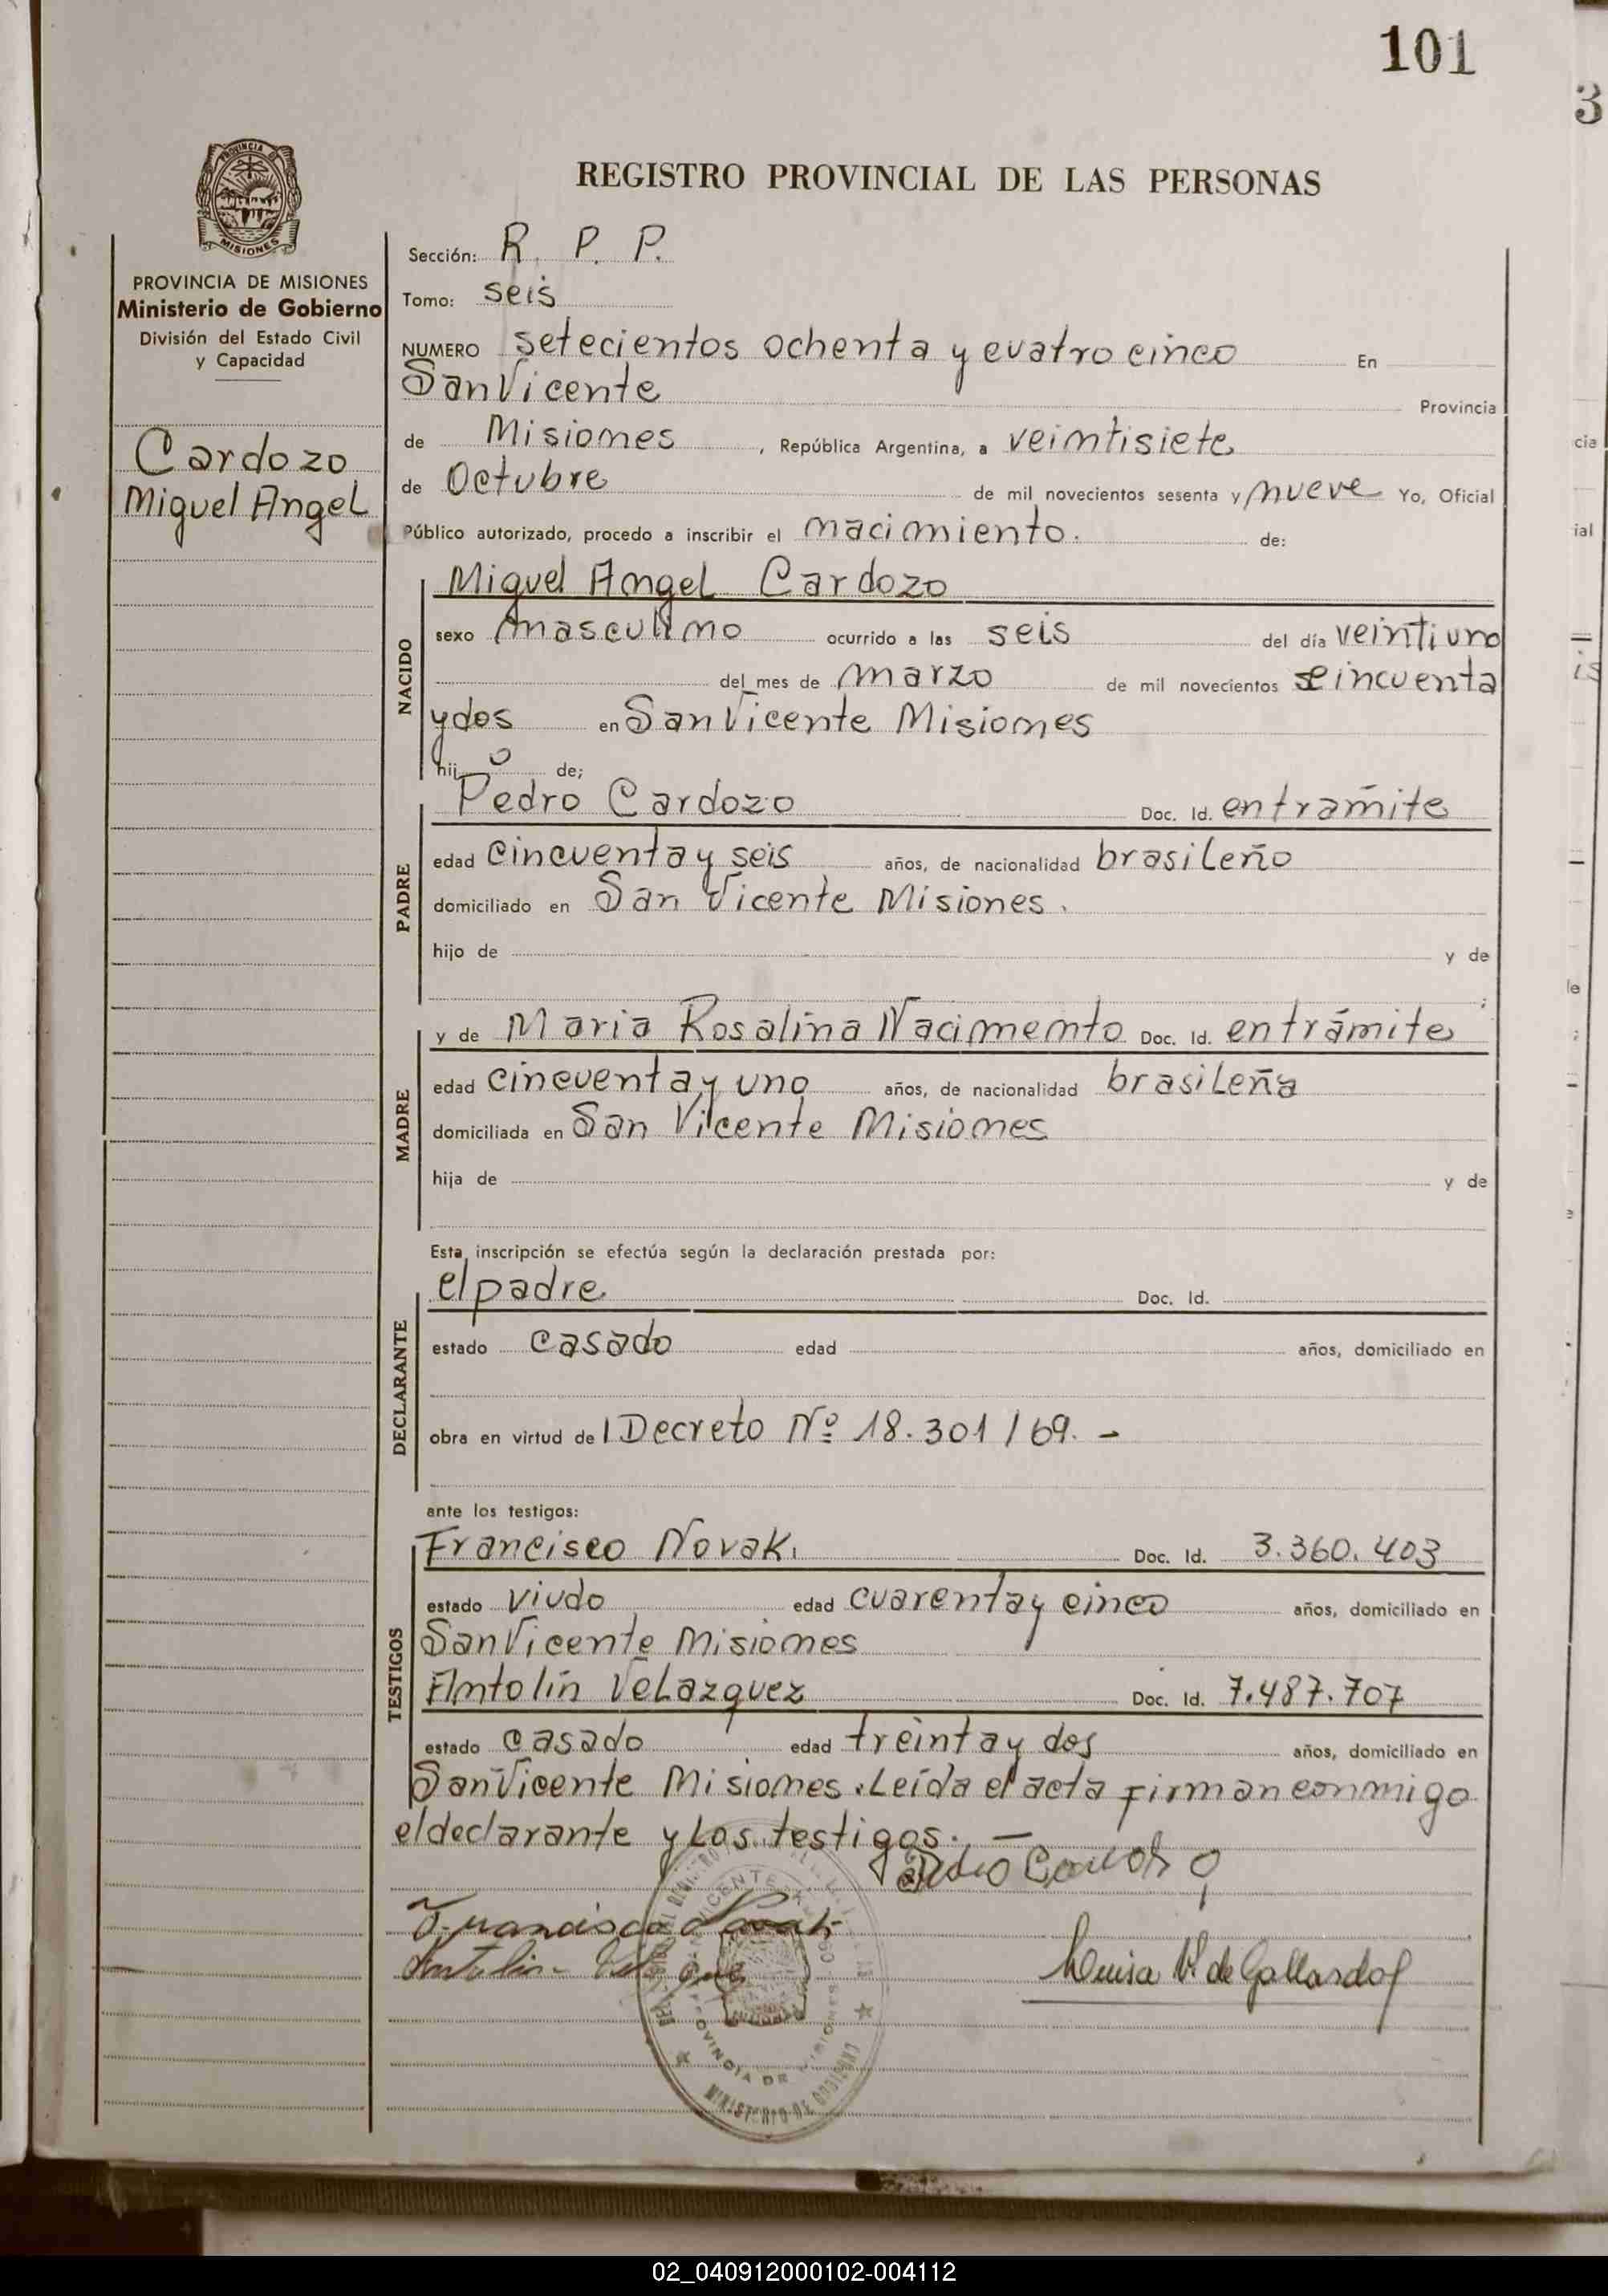 101
3
PROVINCIA DE
MISIONES
REGISTRO PROVINCIAL DE LAS PERSONAS
PROVINCIA DE MISIONES
Ministerio de Gobierno
División del Estado Civil
y Capacidad
Cardozo
Miguel Angel
Sección: R. P. P.
Tomo: seis
NUMERO setecientos ochenta y cuatro cinco En
San Vicente Provincia
de Misiones, República Argentina, a veintisiete
de Octubre de mil novecientos sesenta y nueve Yo, Oficial
Público autorizado, procedo a inscribir el nacimiento. de:
NACIDO
Miguel Angel Cardozo
sexo masculino ocurrido a las seis del día veintiuno
del mes de marzo de mil novecientos cincuenta
y dos en San Vicente Misiones
hijo de;
PADRE
Pedro Cardozo Doc. Id. en tramite
edad cincuenta y seis años, de nacionalidad brasileño
domiciliado en San Vicente Misiones.
hijo de y de
;
MADRE
y de Maria Rosalina Nacimemto Doc. Id. en trámite
edad cincuenta y uno años, de nacionalidad brasileña
domiciliada en San Vicente Misiones
hija de y de
Esta inscripción se efectúa según la declaración prestada por:
DECLARANTE
el padre Doc. Id.
estado casado edad años, domiciliado en
obra en virtud del Decreto Nº 18.301/69.-
ante los testigos:
TESTIGOS
Francisco Novak. Doc. Id. 3.360.403
estado viudo edad cuarenta y cinco años, domiciliado en
San Vicente Misiones
Antolín Velazquez Doc. Id. 7.487.707
estado casado edad treinta y dos años, domiciliado en
San Vicente Misiones. Leída el acta firman conmigo
el declarante y los testigos. —
Francisco Novak
PROVINCIA DE MISIONES
MINISTERIO DE GOBIERNO
Luisa V. de Gallardo
cia
ial
is
le
02_040912000102-004112